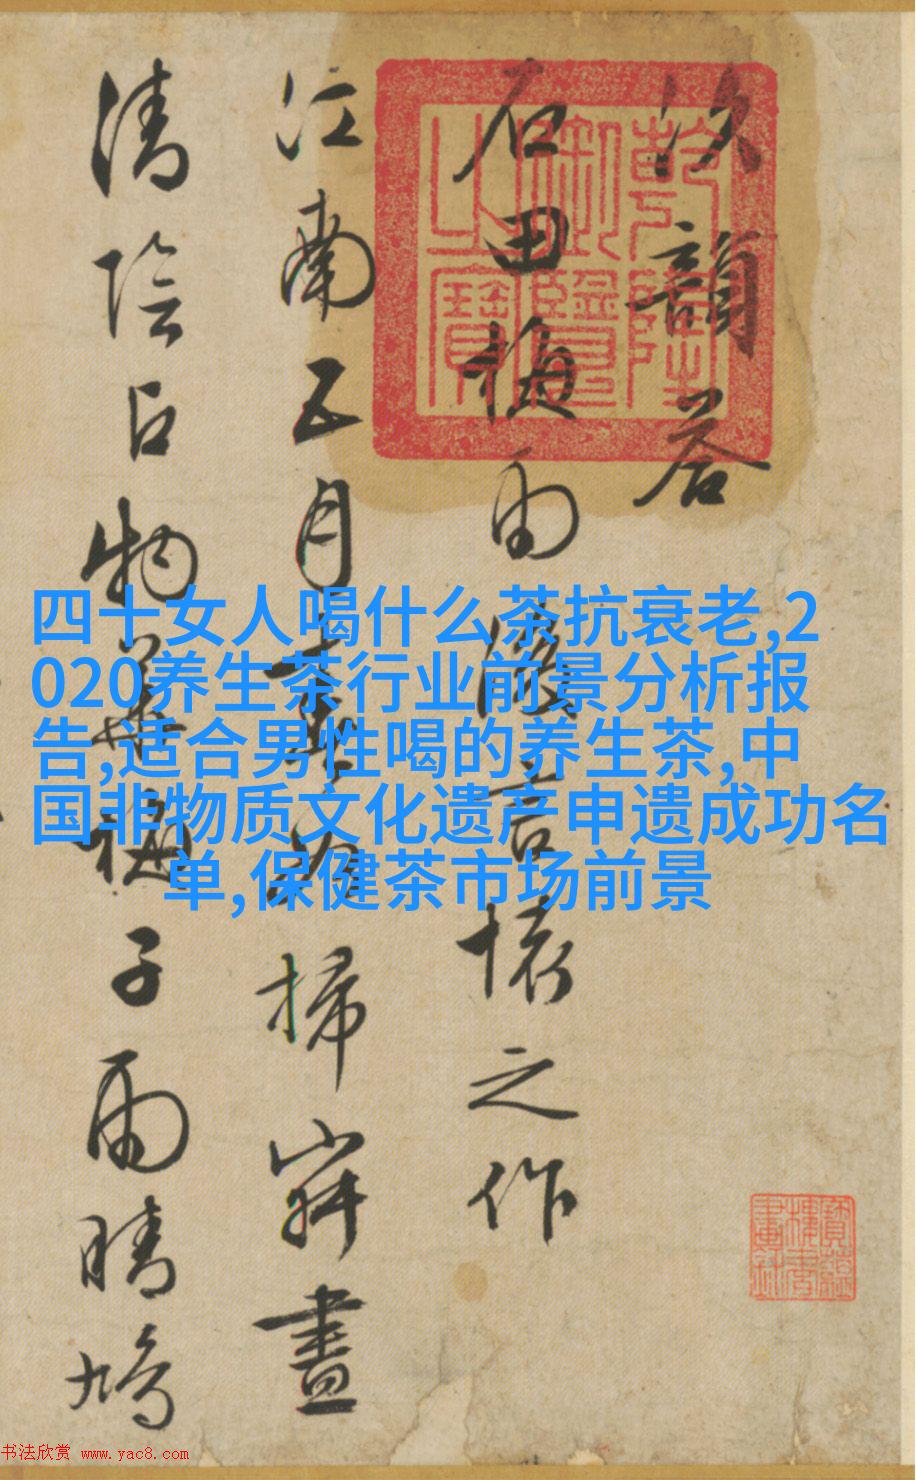 次韻答
石田梅雨言懷之作
江南五月掃畫
清陰占物華梅子雨晴鳩
乾隆
御覽
之寶
四十女人喝什么茶抗衰老,2
020养生茶行业前景分析报
告,适合男性喝的养生茶,中
国非物质文化遗产申遗成功名
单,保健茶市场前景
寶蘊
樓書
畫錄
书法欣赏 www.yac8.com